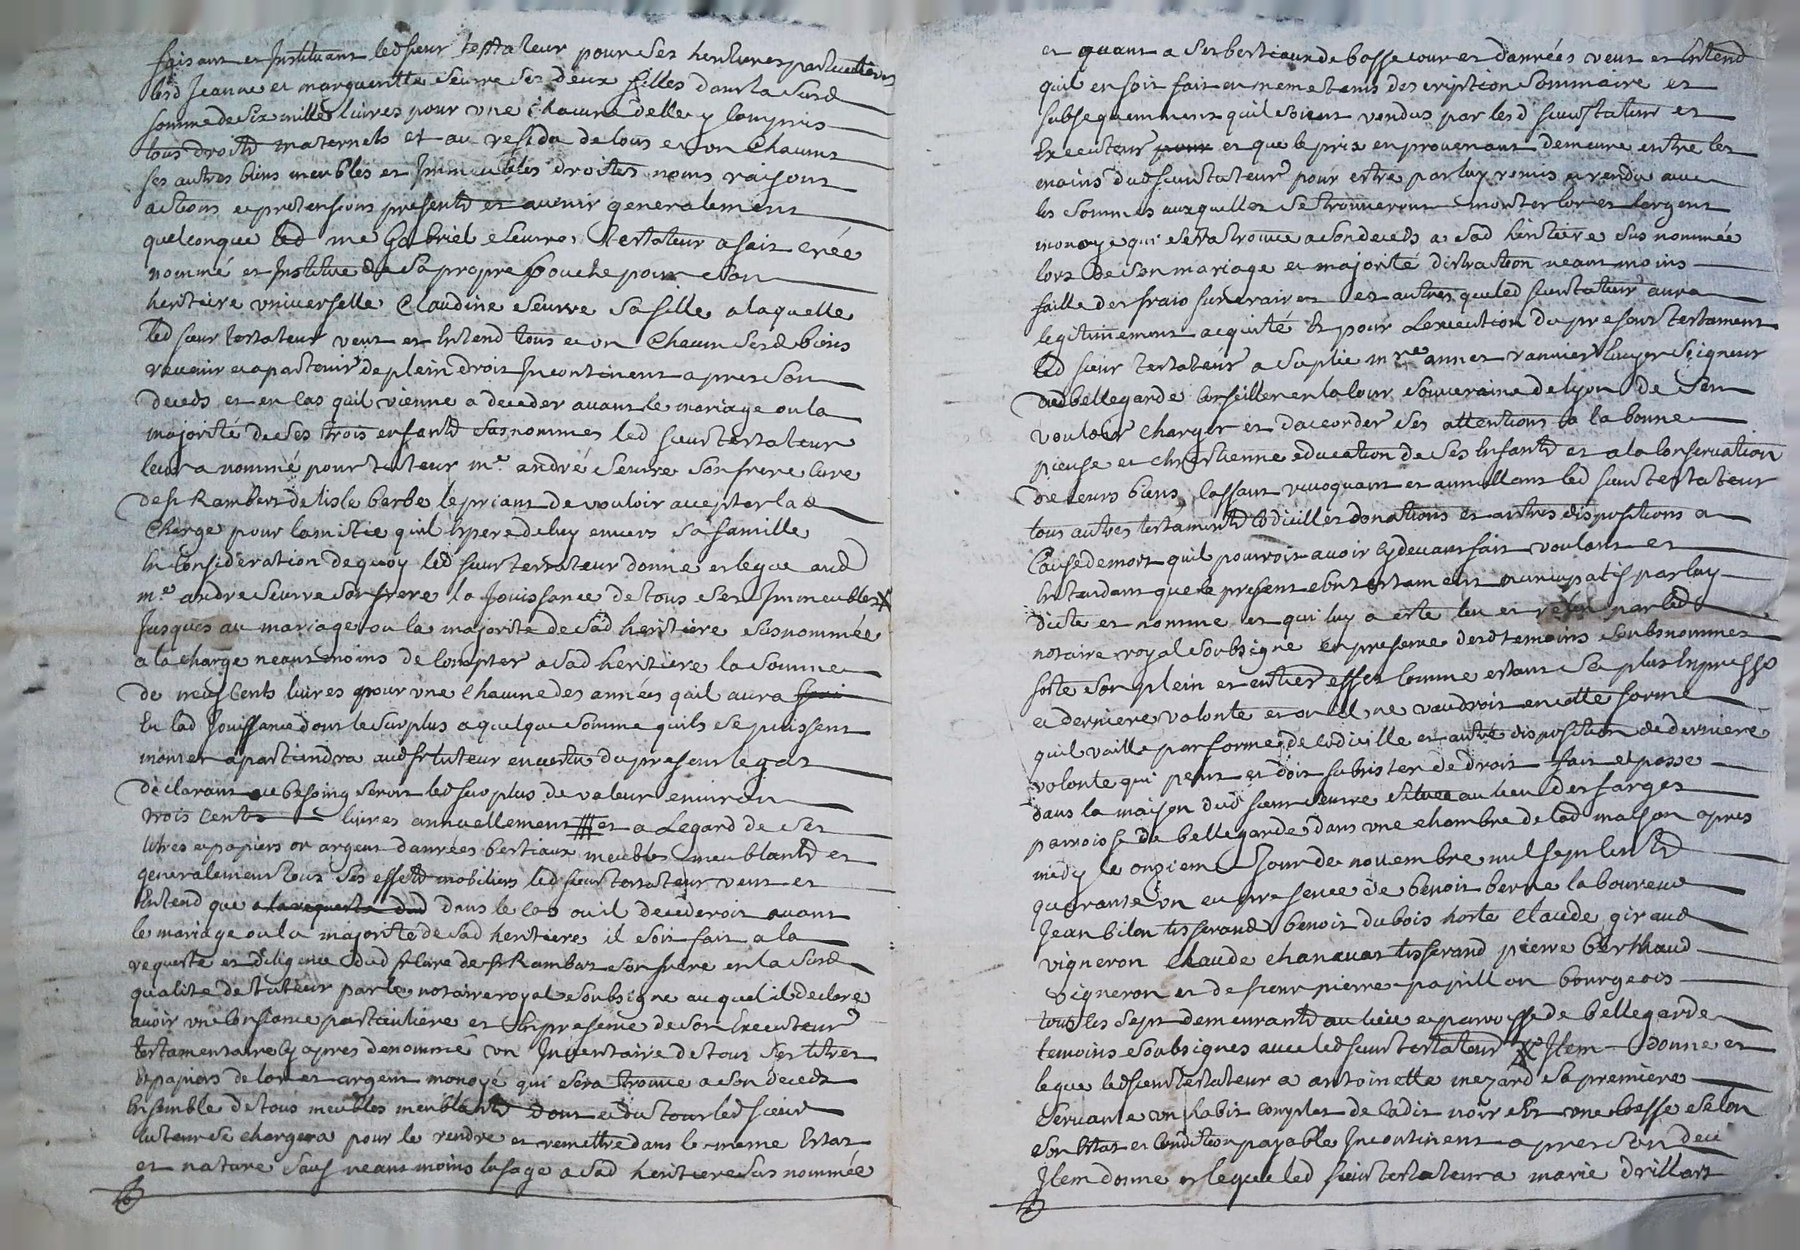 faisant et Instituant led sieur testateur pour ses heritieres particulieres
lesd Jeanne et margueritte seurre ses deux filles dans la susd
somme de six mille livres pour une chacune d'elle y compris
tous droitd maternels et au residu de tous et un chacuns
ses autres biens meubles et Immeubles droites noms raisons
actions et pretensions presentd et avenir generalement
quelconque led me Gabriel seurre testateur a fait créé
nommé et Institue de sa propre bouche pour son
heritiere universelle Claudine seurre sa fille a laquelle
led sieur testateur veut et Entend tous et un chacun sesd biens
revenir et apartenir de plein droit Incontinent apres son
deceds et en cas quil vienne a deceder avant le mariage ou la
majorité de ses trois enfantd susnommes led sieur testateur
leur a nommé pour tuteur me andré seurre son frere cure
de st Rambert de lisle barbe le priant de vouloir accepter lad
charge pour lamitie quil Espere de luy envers sa famille
En Consideration de quoy led sieur testateur donne et legue aud
me andre seurre son frere la Jouissance de tous ses Immeubles
Jusques au mariage ou la majorite de sad heritiere susnommée
a la charge neantmoins de Compter a sad heritiere la somme
de neuf Cents livres pour une chacune des années quil aura
En lad Jouissance dont le surplus a quelque somme quils se puissent
monter apartiendra aud sr tuteur en vertu du present legat
declarant au besoing seroit led surplus de valeur environ
trois Cents livres annuellement et a Legard de ses
titres et papiers or argent danrées bestiaux meubles meublantd et
generalement tous ses effetd mobiliers led sieur testateur veut et
Entend que a la requeste dud dans le cas ou il decederoit avant
le mariage ou la majorité de sad heritiere il soit fait a la
requeste et diligence dud sr Cure de st Rambert son frere en la susd
qualité de tuteur par le notaire royal soubsigne auquel il declare
avoir une Confiance particuliere et En presence de son Executeur
testamentaire Cy apres denommé un Inventaire de tous ses titres
Et papiers de lor et argent monoyé qui sera trouve a son deceds
Ensemble de tous meubles meublantd dont et du tout led sieur
tuteur se chargera pour le rendre et remettre dans le meme Estat
et nature sauf neantmoins lusage a sad heritiere sus nommée
et quant a ses bestiaux de basse cour et danrées veut et Entend
quil en soit fait en meme tems description sommaire et
subsequemment quil soient vendus par lesd sieur tateur et
Executeur pour et que le prix en provenant demeure entre les
mains dud sieur tateur pour estre par luy remis et rendu avec
les sommes auxquelles se trouveront monter lor et largent
monoye qui sera trouve a son deceds a sad heritiere sus nommée
lors de son mariage et majorité distraction neantmoins
faitte des frais funeraires et autres que led sieur tateur aura
legitimement acquité Et pour Lexecution du present testament
led sieur testateur a suplie mre annet rannier Ecuyer Seigneur
dud bellegarde Conseiller en la Cour souveraine de lyon de s'en
vouloir charger et daccorder ses attentions a la bonne
pieuse et chrestienne education de ses Enfantd et a la Conservation
de leurs biens Cassant revoquant et annullant led sieur testateur
tous autres testamentd Codicilles donations et autres dispositions a
Cause de mort quil pourroit avoir Cy devant fait voulant et
Entendant que le present son testament nuncupatif par luy
dicte et nomme et qui luy a este leu et releu par led
notaire royal soubsigne en presence desd temoins soubsnommes
sorte son plein et entier effet Comme estant sa plus Expresse
et derniere volonte et ou il ne vaudroit en cette forme
quil vaille par forme de Codicille et autre disposition de derniere
volonte qui peut et doit subsister de droit fait et passé
dans la maison dud sieur seurre situee au lieu des farges
parroisse de bellegarde dans une chambre de lad maison apres
midy le onzieme Jour de novembre mil sept Centd
quarante un en presence de benoit berne laboureur
Jean bilon tisserand benoit dubois hoste Claude giraud
vigneron Claude chanavat tisserand pierre berthaud
vigneron et de sieur pierre papillon bourgeois
tous les sept demeurantd au lieu et parroisse de bellegarde
temoins soubsignes avec led sieur testateur Item donne et
legue led sieur testateur a antoinette mezard sa premiere
servante un habit complet de Cadis noir Et une coesse selon
son Estat et Condition payable Incontinent apres son dece
Item donne et legue led sieur testateur a marie drillart